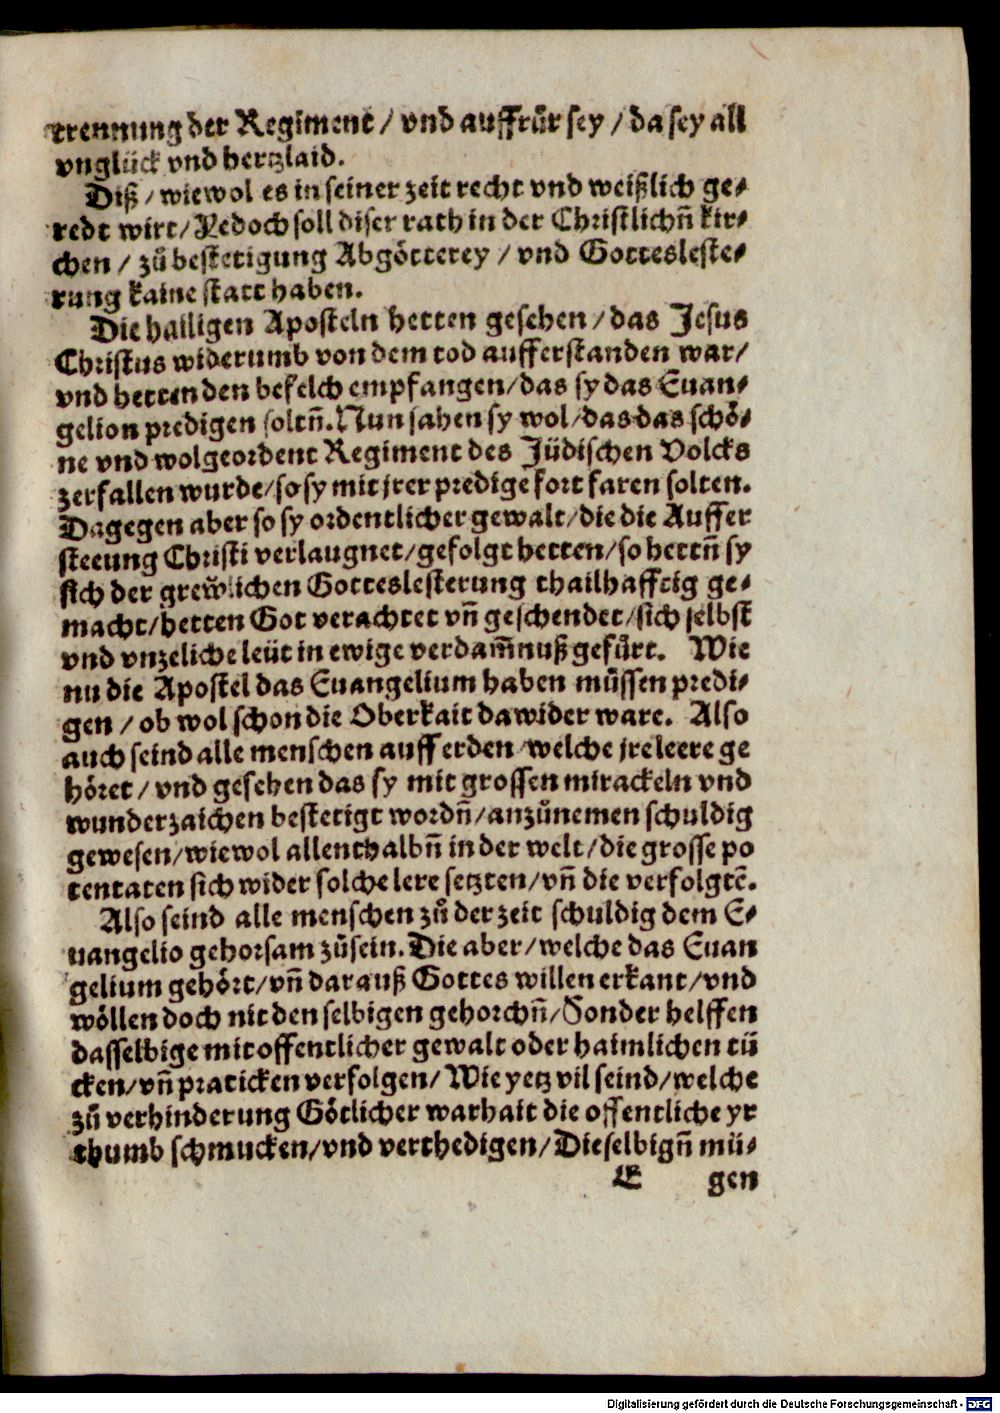 trennung der Regiment / vnd auffrůr sey / da sey all
vnglück vnd hertzlaid.
Diß / wiewol es in seiner zeit recht vnd weißlich ge⸗
redt wirt / Yedoch soll diser rath in der Christlichñ kir⸗
chen / zů bestetigung Abgötterey / vnd Gottesleste⸗
rung kaine statt haben.
Die hailigen Aposteln hetten gesehen / das Jesus
Christus widerumb von dem tod aufferstanden war /
vnd hetten den befelch empfangen / das sy das Euan⸗
gelion predigen soltñ. Nun sahen sy wol / das das schö⸗
ne vnd wolgeordent Regiment des Jüdischen Volcks
zerfallen wurde / so sy mit jrer predige fort faren solten.
Dagegen aber so sy ordentlicher gewalt / die die Auffer
steeung Christi verlaugnet / gefolgt hetten / so hettñ sy
sich der grewlichen Gotteslesterung thailhafftig ge⸗
macht / hetten Got verachtet vñ geschendet / sich selbst
vnd vnzeliche leüt in ewige verdam̃nuß gefůrt. Wie
nu die Apostel das Euangelium haben müssen predi⸗
gen / ob wol schon die Oberkait dawider ware. Also
auch seind alle menschen auff erden welche jre leere ge
höret / vnd gesehen das sy mit grossen mirackeln vnd
wunderzaichen bestetigt wordñ / anzůnemen schuldig
gewesen / wiewol allenthalbñ in der welt / die grosse po
tentaten sich wider solche lere setzten / vñ die verfolgtẽ.
Also seind alle menschen zů der zeit schuldig dem E⸗
uangelio gehorsam zůsein. Die aber / welche das Euan
gelium gehört / vñ darauß Gottes willen erkant / vnd
wöllen doch nit den selbigen gehorchñ / Sonder helffen
dasselbige mit offentlicher gewalt oder haimlichen tü
cken / vñ praticken verfolgen / Wie yetz vil seind / welche
zů verhinderung Götlicher warhait die offentliche yr
thumb schmucken / vnd verthedigen / Dieselbigñ mü⸗
E gen
Digitalisierung gefördert durch die Deutsche Forschungsgemeinschaft - DFG